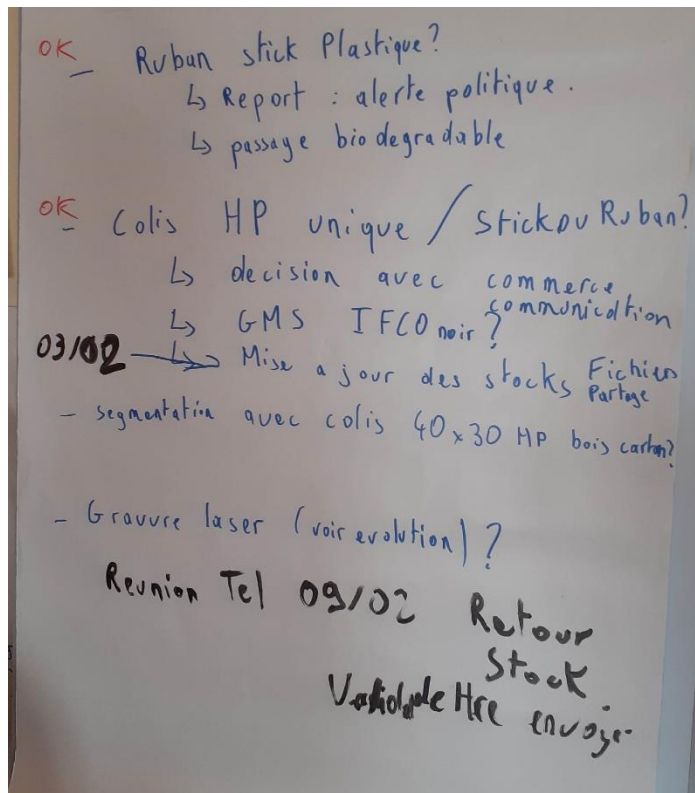 OK - Ruban stick Plastique?
↳ Report : alerte politique.
↳ passage biodegradable
OK - Colis HP unique / Stick ou Ruban?
↳ decision avec commerce communication
↳ GMS IFCO noir?
03/02 → Mise a jour des stocks Fichier Partage
- segmentation avec colis 40x30 HP bois carton?
- Gravure laser (voir evolution)?
Reunion Tel 09/02 Retour
Stock.
envoyer